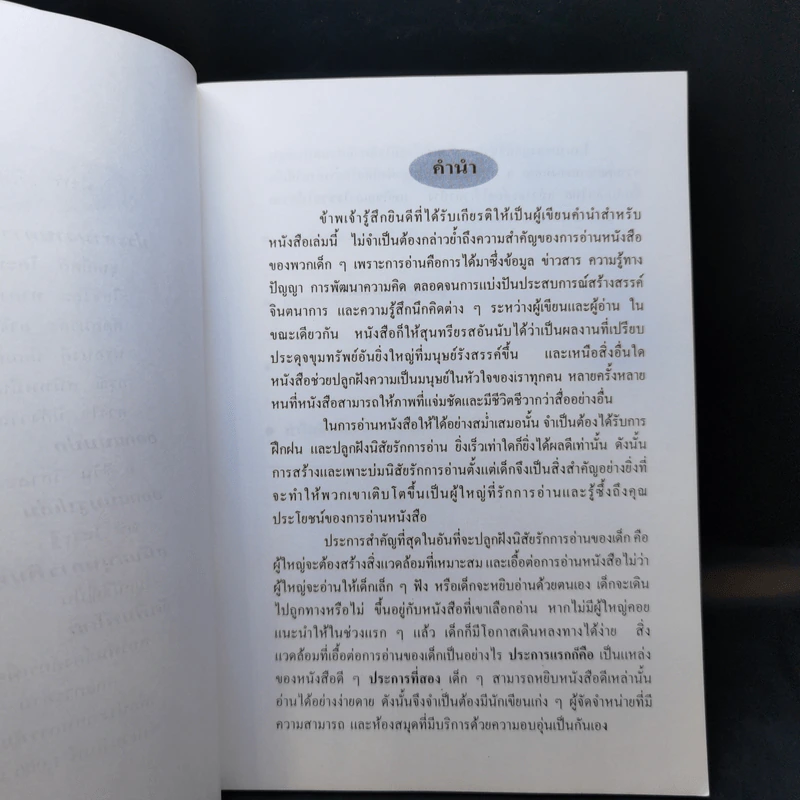 คำนำ
ข้าพเจ้ารู้สึกยินดีที่ได้รับเกียรติให้เป็นผู้เขียนคำนำสำหรับ
หนังสือเล่มนี้ ไม่จำเป็นต้องกล่าวย้ำถึงความสำคัญของการอ่านหนังสือ
ของพวกเด็ก ๆ เพราะการอ่านคือการได้มาซึ่งข้อมูล ข่าวสาร ความรู้ทาง
ปัญญา การพัฒนาความคิด ตลอดจนการแบ่งปันประสบการณ์สร้างสรรค์
จินตนาการ และความรู้สึกนึกคิดต่าง ๆ ระหว่างผู้เขียนและผู้อ่าน ใน
ขณะเดียวกัน หนังสือก็ให้สุนทรียรสอันนับได้ว่าเป็นผลงานที่เปรียบ
ประดุจขุมทรัพย์อันยิ่งใหญ่ที่มนุษย์รังสรรค์ขึ้น และเหนือสิ่งอื่นใด
หนังสือช่วยปลูกฝังความเป็นมนุษย์ในหัวใจของเราทุกคน หลายครั้งหลาย
หนที่หนังสือสามารถให้ภาพที่แจ่มชัดและมีชีวิตชีวากว่าสื่ออย่างอื่น
ในการอ่านหนังสือให้ได้อย่างสม่ำเสมอนั้น จำเป็นต้องได้รับการ
ฝึกฝน และปลูกฝังนิสัยรักการอ่าน ยิ่งเร็วเท่าใดก็ยิ่งได้ผลดีเท่านั้น ดังนั้น
การสร้างและเพาะบ่มนิสัยรักการอ่านตั้งแต่เด็กจึงเป็นสิ่งสำคัญอย่างยิ่งที่
จะทำให้พวกเขาเติบโตขึ้นเป็นผู้ใหญ่ที่รักการอ่านและรู้ซึ้งถึงคุณ
ประโยชน์ของการอ่านหนังสือ
ประการสำคัญที่สุดในอันที่จะปลูกฝังนิสัยรักการอ่านของเด็ก คือ
ผู้ใหญ่จะต้องสร้างสิ่งแวดล้อมที่เหมาะสม และเอื้อต่อการอ่านหนังสือไม่ว่า
ผู้ใหญ่จะอ่านให้เด็กเล็ก ๆ ฟัง หรือเด็กจะหยิบอ่านด้วยตนเอง เด็กจะเดิน
ไปถูกทางหรือไม่ ขึ้นอยู่กับหนังสือที่เขาเลือกอ่าน หากไม่มีผู้ใหญ่คอย
แนะนำให้ในช่วงแรก ๆ แล้ว เด็กก็มีโอกาสเดินหลงทางได้ง่าย สิ่ง
แวดล้อมที่เอื้อต่อการอ่านของเด็กเป็นอย่างไร ประการแรกก็คือ เป็นแหล่ง
ของหนังสือดี ๆ ประการที่สอง เด็ก ๆ สามารถหยิบหนังสือดีเหล่านั้น
อ่านได้อย่างง่ายดาย ดังนั้นจึงจำเป็นต้องมีนักเขียนเก่ง ๆ ผู้จัดจำหน่ายที่มี
ความสามารถ และห้องสมุดที่มีบริการด้วยความอบอุ่นเป็นกันเอง